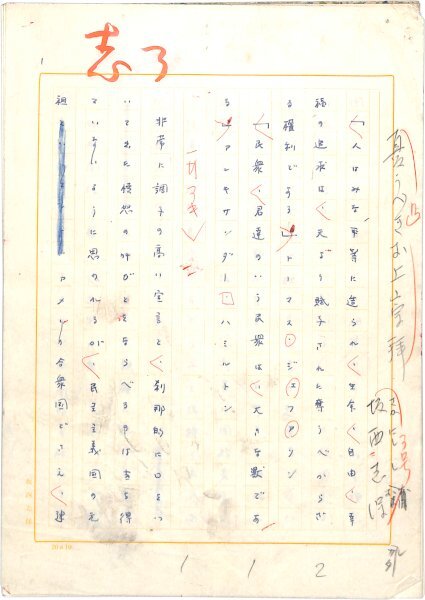 志了
憂うべきお上崇拝
坂西志保
「人はみな平等に造られ、生命、自由、幸
福の追求は、天より賦与された奪うべからざ
る権利である」トーマス・ジェファソン
「民衆、君達のいう民衆は、大きな獣であ
る」アレキサンダー・ハミルトン
一行アキ
非常に調子の高い宣言と、刹那的に口をつ
いて出た憤怒の叫びとをならべるのは当を得
ていないように思われるが、民主主義国の元
祖 アメリカ合衆国でさえ、建
112